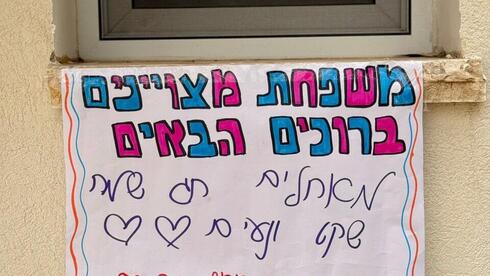 משפחת מצוייכים
ברוכים הבאים
מאחלים חג שמח
שקט ונעים